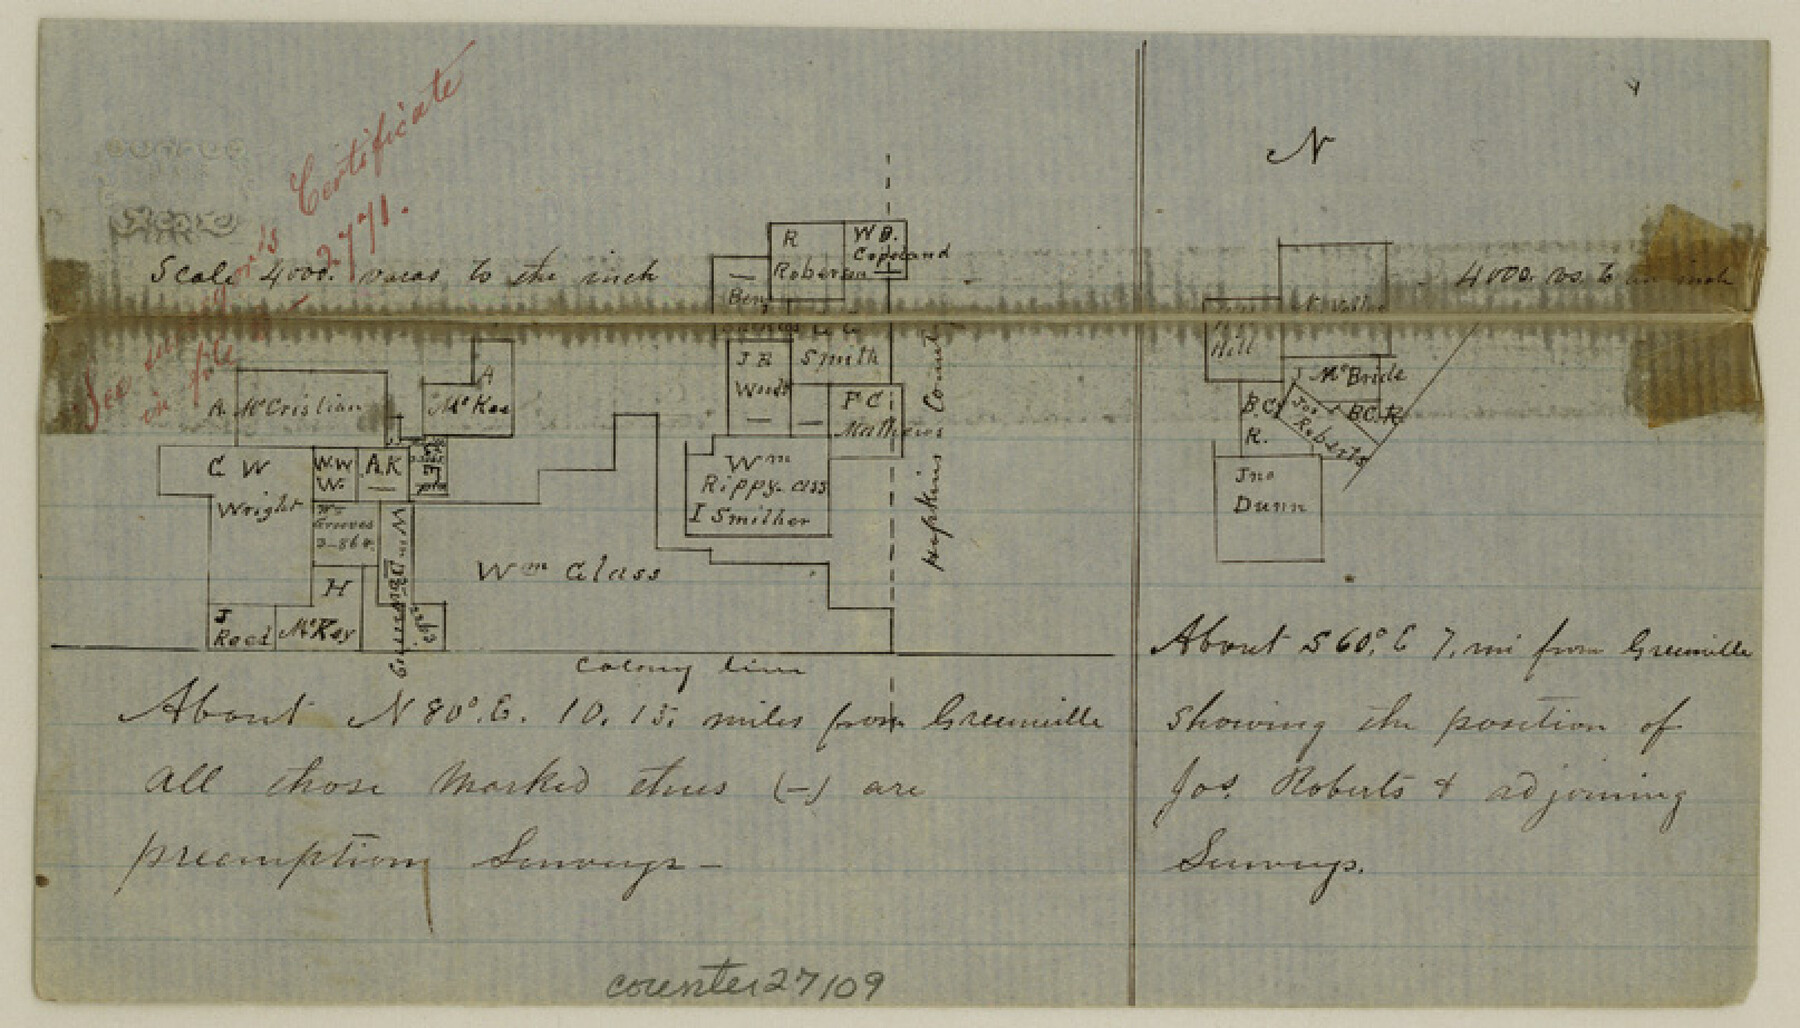 See surveyor's Certificate
in file 2771.
Scale 4000. varas to the inch
R
Roberson
W B.
Copeland
Ben
J B
Woods
Smith
F C
Mathews
Hopkins County
A McCristian
A
McKee
C W
Wright
W.W
W.
A.K
Wm
Groves
2-864.
Wm
Rippy. ass
I Smither
Wm Glass
Wm Downing
H
McKey
J
Reed
Colony line
About N 80°. E. 10. 15. miles from Greenville
all those marked thus (-) are
preemption Surveys -
N
4000. vs. to an inch
Hill
J McBride
B.C.
R.
Jos
Roberts
B.C.R.
Jno
Dunn
About S 60°. E 7. mi from Greenville
showing the position of
Jos. Roberts & adjoining
Surveys.
counter 27109